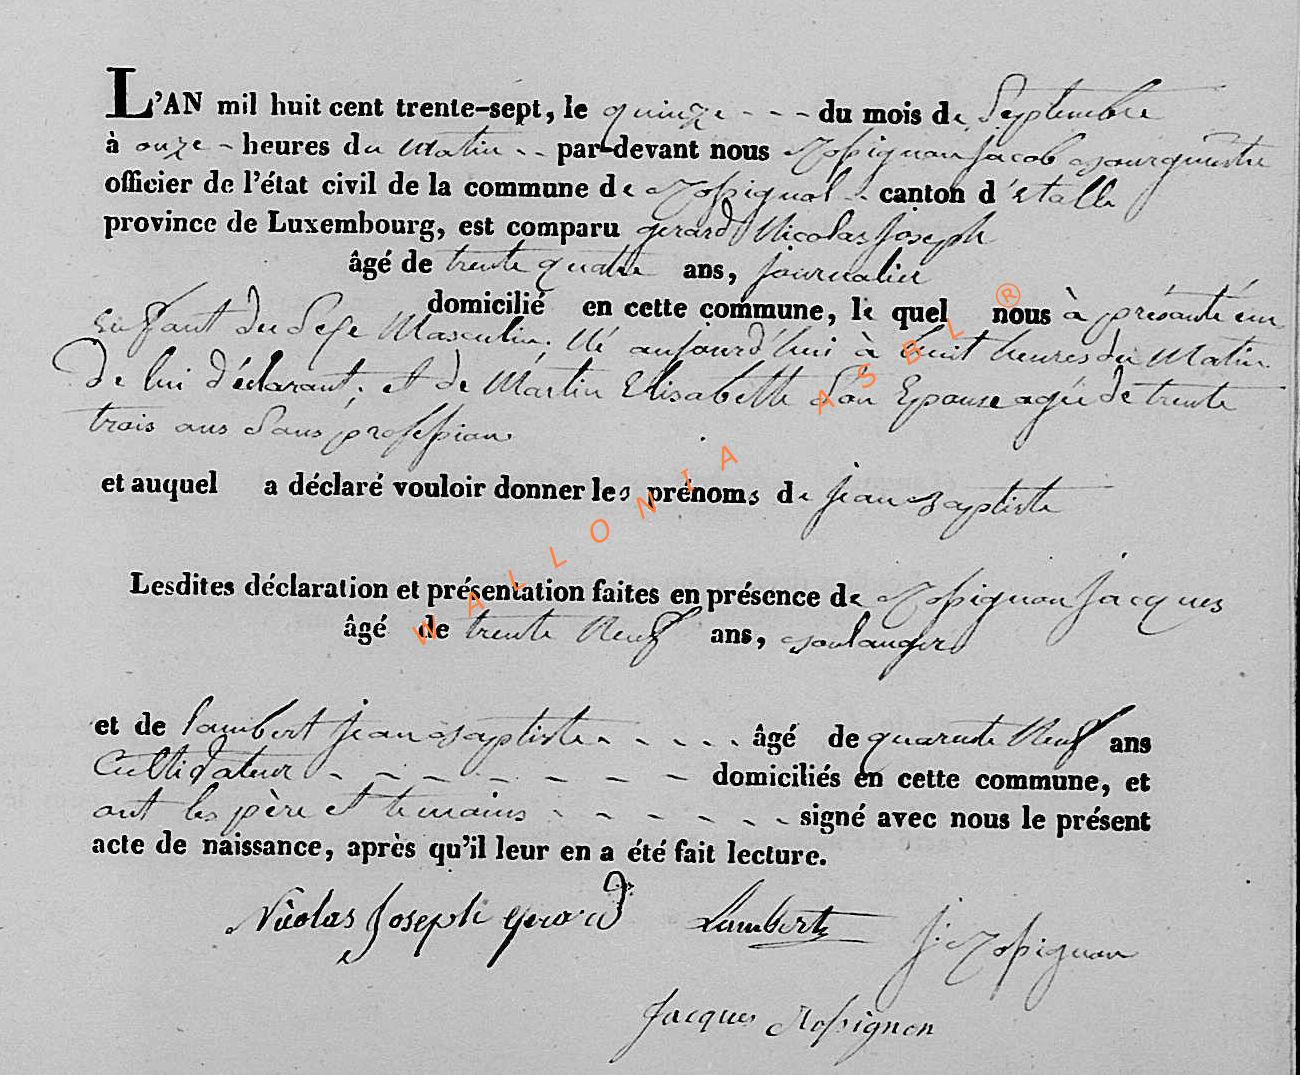 L'AN mil huit cent trente-sept, le quinze - - - du mois de Septembre
à onze - heures du Matin - - par-devant nous Rossignon Jacob Bourguestre
officier de l'état civil de la commune de Rossignol - - canton d'etalle
province de Luxembourg, est comparu gerard Nicolas Joseph
âgé de trente quatre ans, journalier
domicilié en cette commune, le quel nous à présenté un
Enffant du Sexe Masculin. Né aujourd'hui à huit heures du Matin.
De lui déclarant; et de Martin Elisabette son Epouse agée de trente
trois ans Sans profession.
et auquel a déclaré vouloir donner les prénoms de jean Baptiste
Lesdites déclaration et présentation faites en présence de Rossignon Jacques
âgé de trente Neuf ans, Boulanger
et de Lambert Jean Baptiste - - - - - âgé de quarente Neuf ans
Cultivateur - - - - - - - - domiciliés en cette commune, et
ont les père et temoins - - - - - - signé avec nous le présent
acte de naissance, après qu'il leur en a été fait lecture.
Nicolas Joseph Gerard Lambert J. Rossignon
Jacques Rossignon
WALLONIA ASBL ®